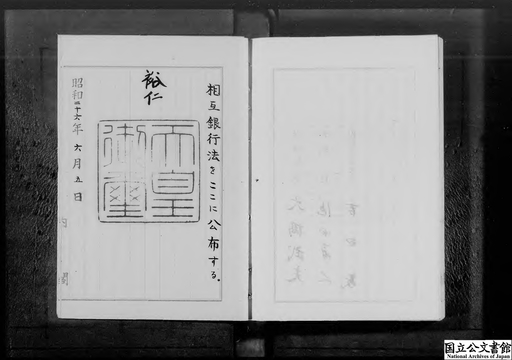 相互銀行法をここに公布する。
裕仁
天皇御璽
昭和二十六年六月五日
内閣
国立公文書館
National Archives of Japan